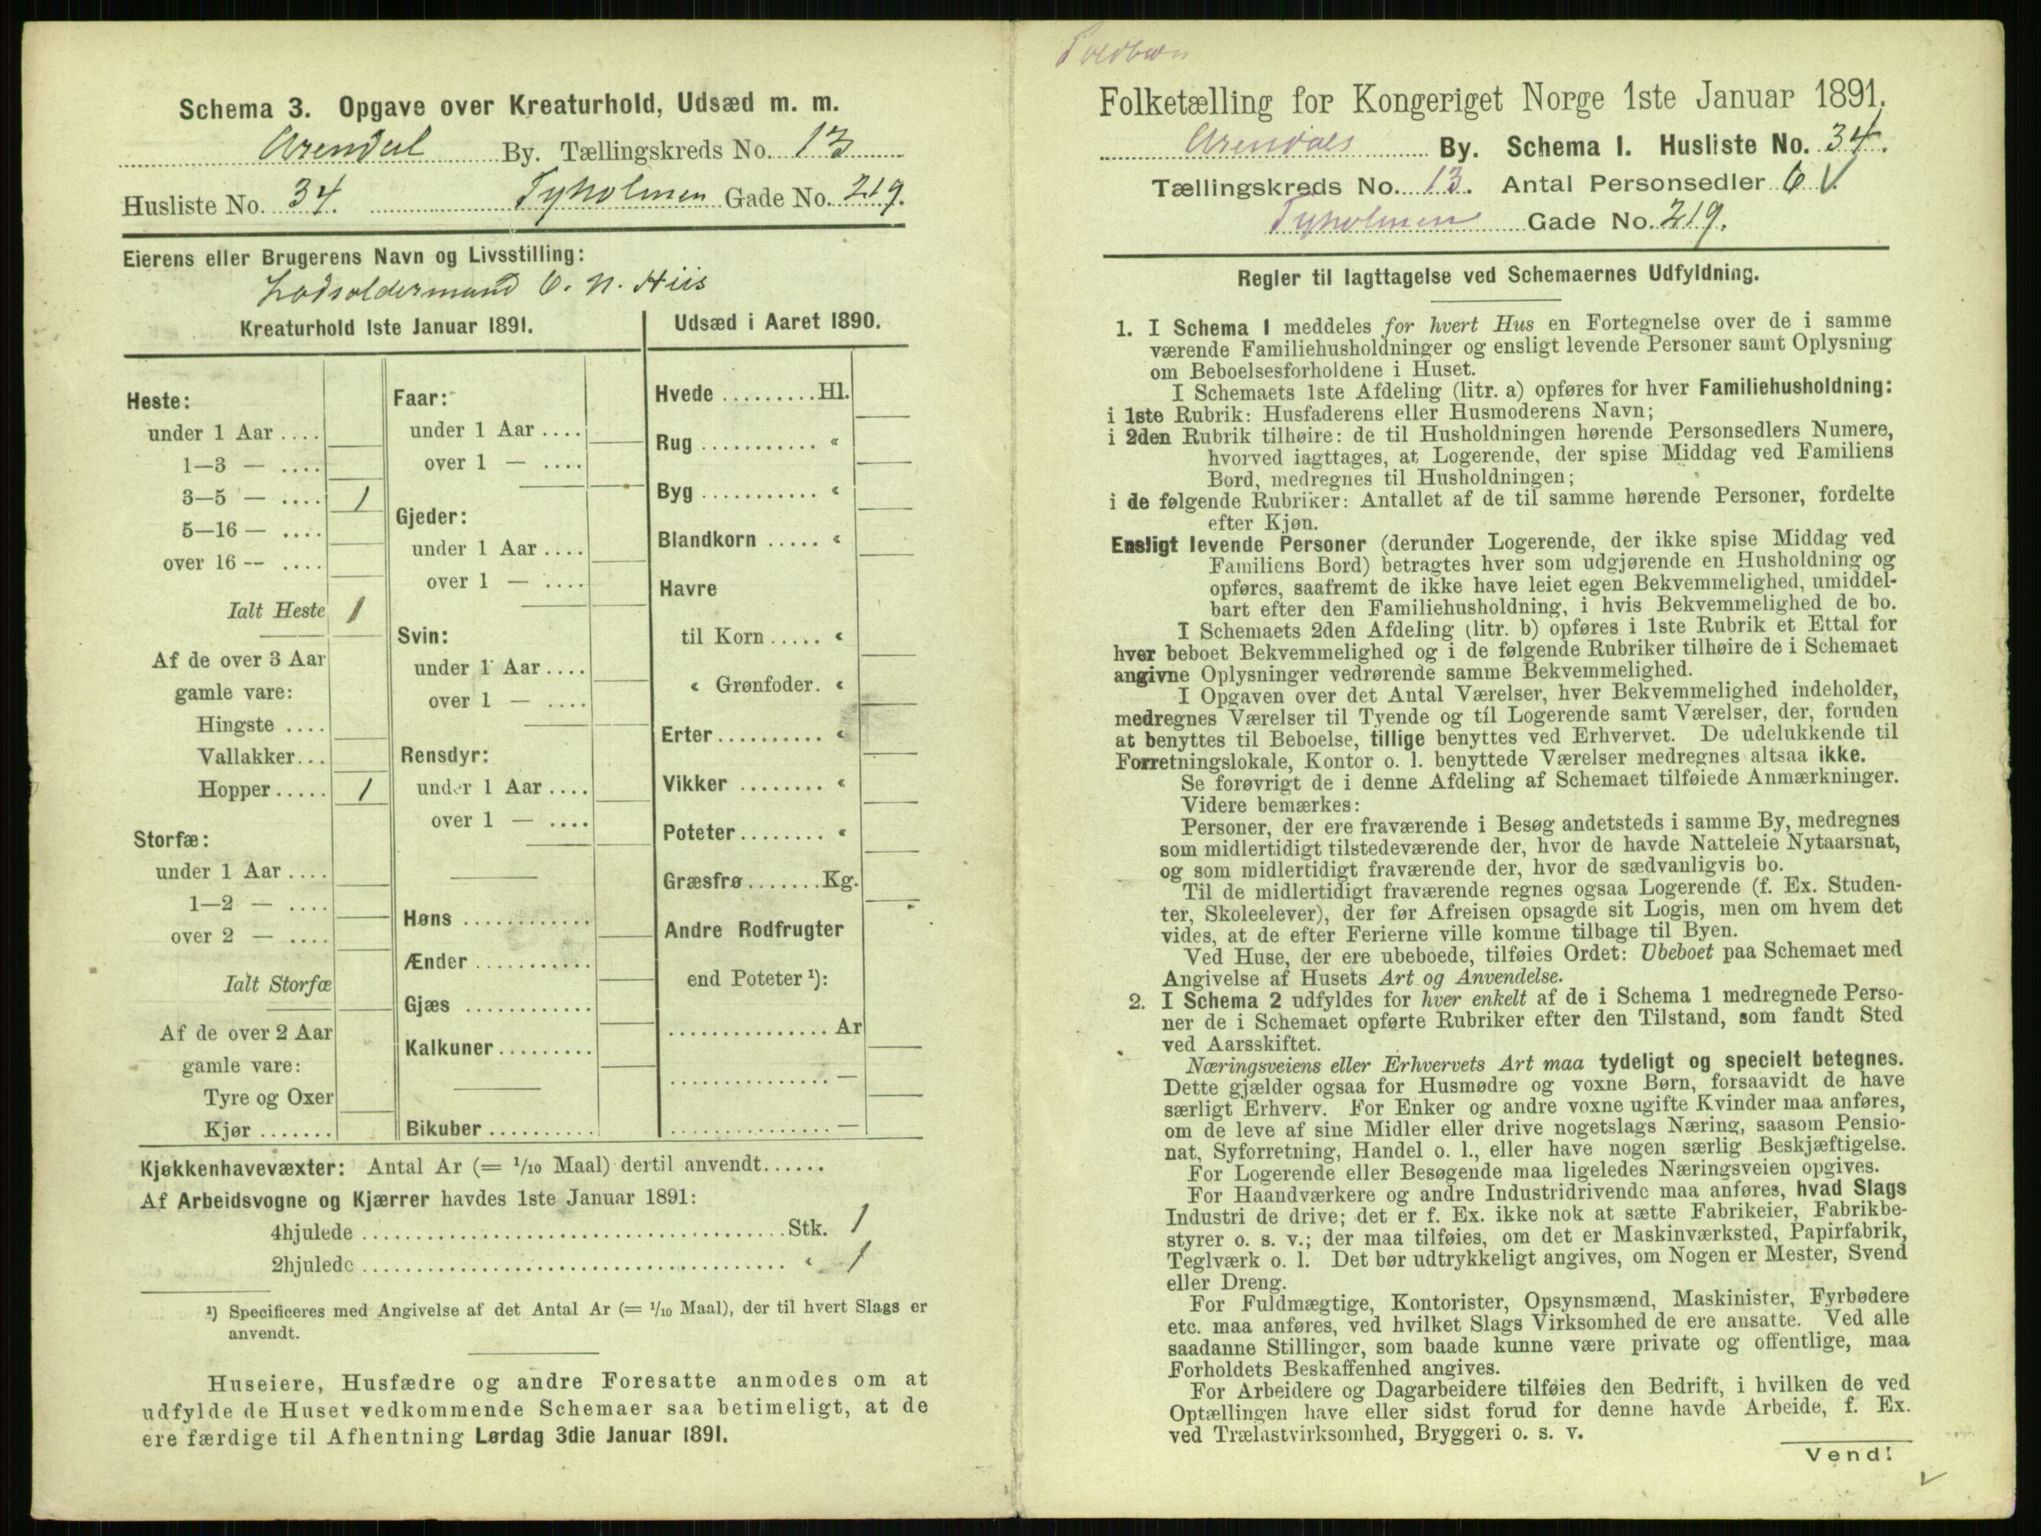 Schema 3. Opgave over Kreaturhold, Udsæd m. m.
Arendal By. Tællingskreds No. 13
Husliste No. 34. Tyholmen Gade No. 219.
Eierens eller Brugerens Navn og Livsstilling:
Lodsoldermand O. N. Hiis
Kreaturhold 1ste Januar 1891.
Heste:
under 1 Aar ....
1—3 — ....
3—5 — .... 1
5—16 — ....
over 16 — ....
Ialt Heste 1
Af de over 3 Aar
gamle vare:
Hingste ....
Vallakker...
Hopper ..... 1
Storfæ:
under 1 Aar ....
1—2 — ....
over 2 — ....
Ialt Storfæ
Af de over 2 Aar
gamle vare:
Tyre og Oxer
Kjør .......
Faar:
under 1 Aar ....
over 1 — ....
Gjeder:
under 1 Aar ....
over 1 — ....
Svin:
under 1 Aar ....
over 1 — ....
Rensdyr:
under 1 Aar ....
over 1 — ....
Høns ............
Ænder ...........
Gjæs ............
Kalkuner .........
Bikuber ..........
Udsæd i Aaret 1890.
Hvede ......... Hl.
Rug ........... «
Byg ........... «
Blandkorn ..... «
Havre
til Korn ..... «
« Grønfoder. «
Erter .......... «
Vikker ........ «
Poteter ........ «
Græsfrø ....... Kg.
Andre Rodfrugter
end Poteter ¹):
............... Ar
............... —
............... —
Kjøkkenhavevæxter: Antal Ar (= 1/10 Maal) dertil anvendt......
Af Arbeidsvogne og Kjærrer havdes 1ste Januar 1891:
4hjulede ........................................ Stk. 1
2hjulede ........................................ « 1
¹) Specificeres med Angivelse af det Antal Ar (= 1/10 Maal), der til hvert Slags er
anvendt.
Huseiere, Husfædre og andre Foresatte anmodes om at
udfylde de Huset vedkommende Schemaer saa betimeligt, at de
ere færdige til Afhentning Lørdag 3die Januar 1891.
Folketælling for Kongeriget Norge 1ste Januar 1891.
Arendals By. Schema I. Husliste No. 34.
Tællingskreds No. 13. Antal Personsedler 6 √.
Tyholmen Gade No. 219.
Regler til Iagttagelse ved Schemaernes Udfyldning.
1. I Schema 1 meddeles for hvert Hus en Fortegnelse over de i samme
værende Familiehusholdninger og ensligt levende Personer samt Oplysning
om Beboelsesforholdene i Huset.
I Schemaets 1ste Afdeling (litr. a) opføres for hver Familiehusholdning:
i 1ste Rubrik: Husfaderens eller Husmoderens Navn;
i 2den Rubrik tilhøire: de til Husholdningen hørende Personsedlers Numere,
hvorved iagttages, at Logerende, der spise Middag ved Familiens
Bord, medregnes til Husholdningen;
i de følgende Rubriker: Antallet af de til samme hørende Personer, fordelte
efter Kjøn.
Ensligt levende Personer (derunder Logerende, der ikke spise Middag ved
Familiens Bord) betragtes hver som udgjørende en Husholdning og
opføres, saafremt de ikke have leiet egen Bekvemmelighed, umiddel-
bart efter den Familiehusholdning, i hvis Bekvemmelighed de bo.
I Schemaets 2den Afdeling (litr. b) opføres i 1ste Rubrik et Ettal for
hver beboet Bekvemmelighed og i de følgende Rubriker tilhøire de i Schemaet
angivne Oplysninger vedrørende samme Bekvemmelighed.
I Opgaven over det Antal Værelser, hver Bekvemmelighed indeholder,
medregnes Værelser til Tyende og til Logerende samt Værelser, der, foruden
at benyttes til Beboelse, tillige benyttes ved Erhvervet. De udelukkende til
Forretningslokale, Kontor o. l. benyttede Værelser medregnes altsaa ikke.
Se forøvrigt de i denne Afdeling af Schemaet tilføiede Anmærkninger.
Videre bemærkes:
Personer, der ere fraværende i Besøg andetsteds i samme By, medregnes
som midlertidigt tilstedeværende der, hvor de havde Natteleie Nytaarsnat,
og som midlertidigt fraværende der, hvor de sædvanligvis bo.
Til de midlertidigt fraværende regnes ogsaa Logerende (f. Ex. Studen-
ter, Skoleelever), der før Afreisen opsagde sit Logis, men om hvem det
vides, at de efter Ferierne ville komme tilbage til Byen.
Ved Huse, der ere ubeboede, tilføies Ordet: Ubeboet paa Schemaet med
Angivelse af Husets Art og Anvendelse.
2. I Schema 2 udfyldes for hver enkelt af de i Schema 1 medregnede Perso-
ner de i Schemaet opførte Rubriker efter den Tilstand, som fandt Sted
ved Aarsskiftet.
Næringsveiens eller Erhvervets Art maa tydeligt og specielt betegnes.
Dette gjælder ogsaa for Husmødre og voxne Børn, forsaavidt de have
særligt Erhverv. For Enker og andre voxne ugifte Kvinder maa anføres,
om de leve af sine Midler eller drive nogetslags Næring, saasom Pensio-
nat, Syforretning, Handel o. l., eller have nogen særlig Beskjæftigelse.
For Logerende eller Besøgende maa ligeledes Næringsveien opgives.
For Haandværkere og andre Industridrivende maa anføres, hvad Slags
Industri de drive; det er f. Ex. ikke nok at sætte Fabrikeier, Fabrikbe-
styrer o. s. v.; der maa tilføies, om det er Maskinværksted, Papirfabrik,
Teglværk o. l. Det bør udtrykkeligt angives, om Nogen er Mester, Svend
eller Dreng.
For Fuldmægtige, Kontorister, Opsynsmænd, Maskinister, Fyrbødere
etc. maa anføres, ved hvilket Slags Virksomhed de ere ansatte. Ved alle
saadanne Stillinger, som baade kunne være private og offentlige, maa
Forholdets Beskaffenhed angives.
For Arbeidere og Dagarbeidere tilføies den Bedrift, i hvilken de ved
Optællingen have eller sidst forud for denne havde Arbeide, f. Ex.
ved Trælastvirksomhed, Bryggeri o. s. v.
Vend!